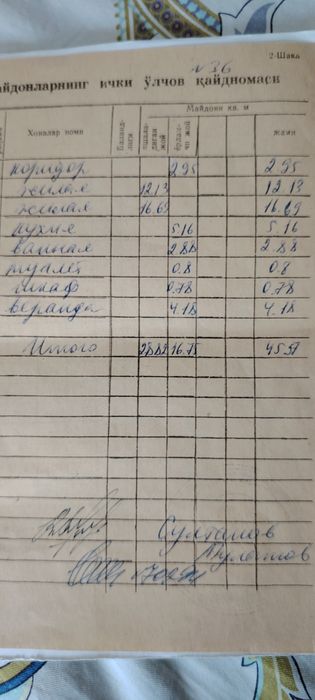 N 36
2-Шакл
айдонларнинг ички ўлчов қайдномаси
Хоналар номи
Баланд-
лиги
Майдони кв. м
яшала-
диган
жой
ёрдам-
чи жой
жами
коридор 2.95 2.95
жилая 12.13 12.13
жилая 16.69 16.69
кухня 5.16 5.16
ванная 2.88 2.88
туалет 0.8 0.8
шкаф 0.78 0.78
веранда 4.18 4.18
Итого 28.82 16.75 45.57
Султанов